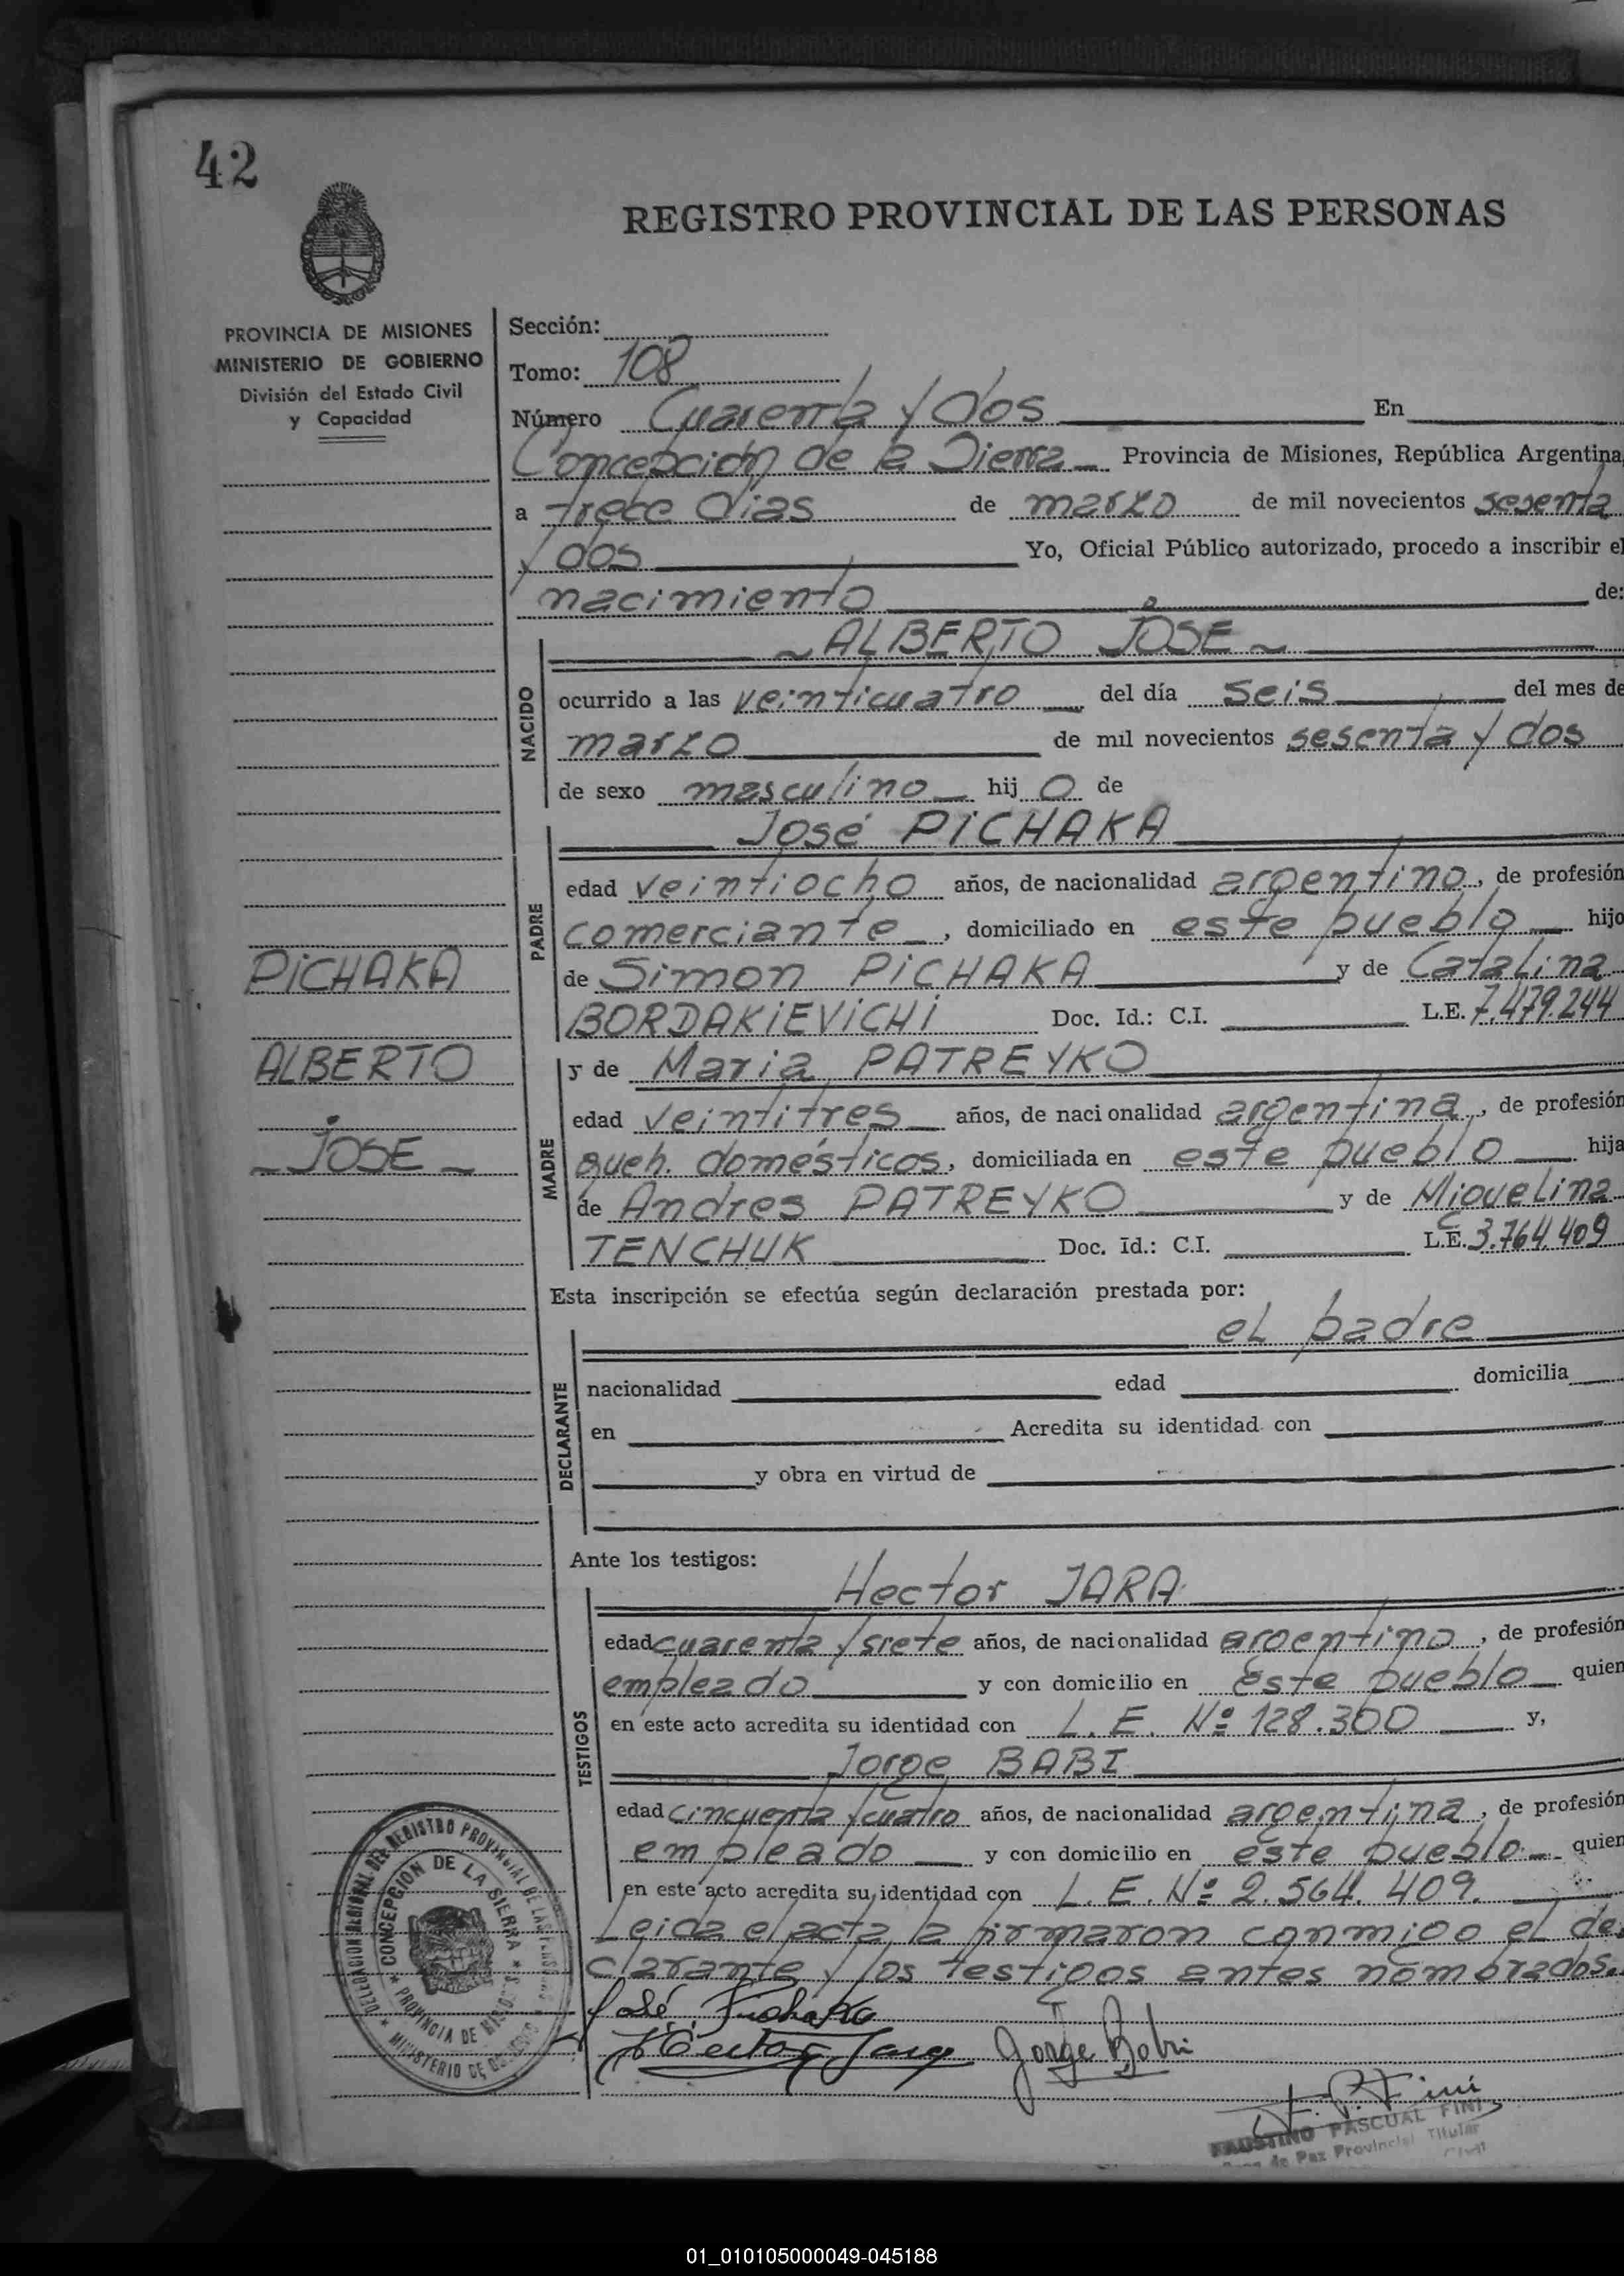 42
REGISTRO PROVINCIAL DE LAS PERSONAS
PROVINCIA DE MISIONES
MINISTERIO DE GOBIERNO
División del Estado Civil
y Capacidad
Sección:
Tomo: 108
Número Cuarenta y dos En
Concepción de la Sierra Provincia de Misiones, República Argentina,
a trece días de marzo de mil novecientos sesenta
y dos Yo, Oficial Público autorizado, procedo a inscribir el
nacimiento de:
NACIDO
ALBERTO JOSE
ocurrido a las veinticuatro del día seis del mes de
marzo de mil novecientos sesenta y dos
de sexo masculino hij o de
PADRE
José PICHAKA
edad veintiocho años, de nacionalidad argentino, de profesión
comerciante, domiciliado en este pueblo hijo
de Simon PICHAKA y de Catalina
BORDAKIEVICHI Doc. Id.: C.I. L.E. 7.479.244
PICHAKA
ALBERTO
JOSE
MADRE
y de Maria PATREYKO
edad veintitres años, de nacionalidad argentina, de profesión
queh. domésticos, domiciliada en este pueblo hija
de Andres PATREYKO y de Miquelina
TENCHUK Doc. Id.: C.I. L.E. C 3.764.409
Esta inscripción se efectúa según declaración prestada por:
DECLARANTE
el padre
nacionalidad edad domicilia
en Acredita su identidad con
y obra en virtud de
Ante los testigos:
TESTIGOS
Hector JARA
edad cuarenta y siete años, de nacionalidad argentino, de profesión
empleado y con domicilio en este pueblo quien
en este acto acredita su identidad con L.E. Nº 128.300 y,
Jorge BABI
edad cincuenta y cuatro años, de nacionalidad argentina, de profesión
empleado y con domicilio en este pueblo quien
en este acto acredita su identidad con L.E. Nº 2.564.409.
Leida el acta la firmaron conmigo el de
clarante y los testigos antes nombrados.
José Pichaka
Hector Jara Jorge Bobi
F. P. Fini
FAUSTINO PASCUAL FINI
de Paz Provincial Titular
Civil
DELEGACION REGIONAL DEL REGISTRO PROVINCIAL DE LAS PERSONAS
CONCEPCION DE LA SIERRA
PROVINCIA DE MISIONES
MINISTERIO DE GOBIERNO
01_010105000049-045188